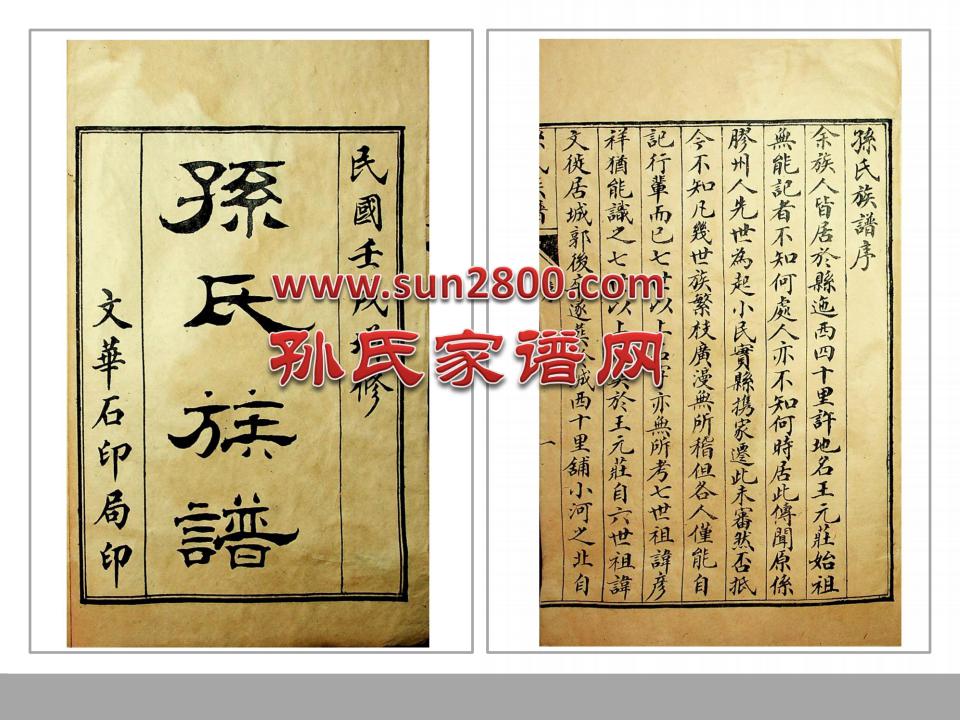 民國壬戌 修
孫氏族譜
文華石印局印
www.sun2800.com
孙氏家谱网
孫氏族譜序
余族人皆居於縣迤西四十里許地名王元莊始祖
無能記者不知何處人亦不知何時居此傳聞原係
膠州人先世為起小民實縣携家遷此未審然否抵
今不知凡幾世族繁枝廣漫無所稽但各人僅能自
記行輩而已七世以上 亦無所考七世祖諱彦
祥猶能識之七世以上 於王元莊自六世祖諱
文徙居城郭後 遂 城西十里舖小河之北自
氏族譜
一